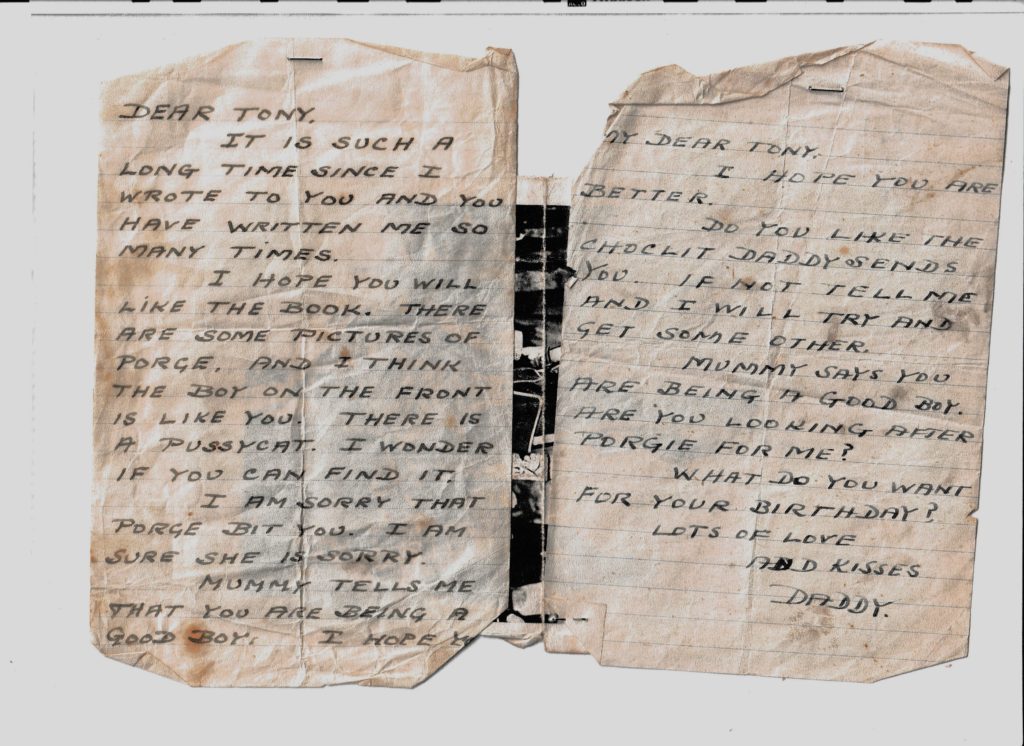 DEAR TONY.
IT IS SUCH A
LONG TIME SINCE I
WROTE TO YOU AND YOU
HAVE WRITTEN ME SO
MANY TIMES.
I HOPE YOU WILL
LIKE THE BOOK. THERE
ARE SOME PICTURES OF
PORGE, AND I THINK
THE BOY ON THE FRONT
IS LIKE YOU. THERE IS
A PUSSYCAT. I WONDER
IF YOU CAN FIND IT.
I AM SORRY THAT
PORGE BIT YOU. I AM
SURE SHE IS SORRY.
MUMMY TELLS ME
THAT YOU ARE BEING A
GOOD BOY. I HOPE
MY DEAR TONY.
I HOPE YOU ARE
BETTER.
DO YOU LIKE THE
CHOCLIT DADDY SENDS
YOU. IF NOT TELL ME
AND I WILL TRY AND
GET SOME OTHER.
MUMMY SAYS YOU
ARE BEING A GOOD BOY.
ARE YOU LOOKING AFTER
PORGIE FOR ME?
WHAT DO YOU WANT
FOR YOUR BIRTHDAY?
LOTS OF LOVE
AND KISSES
DADDY.